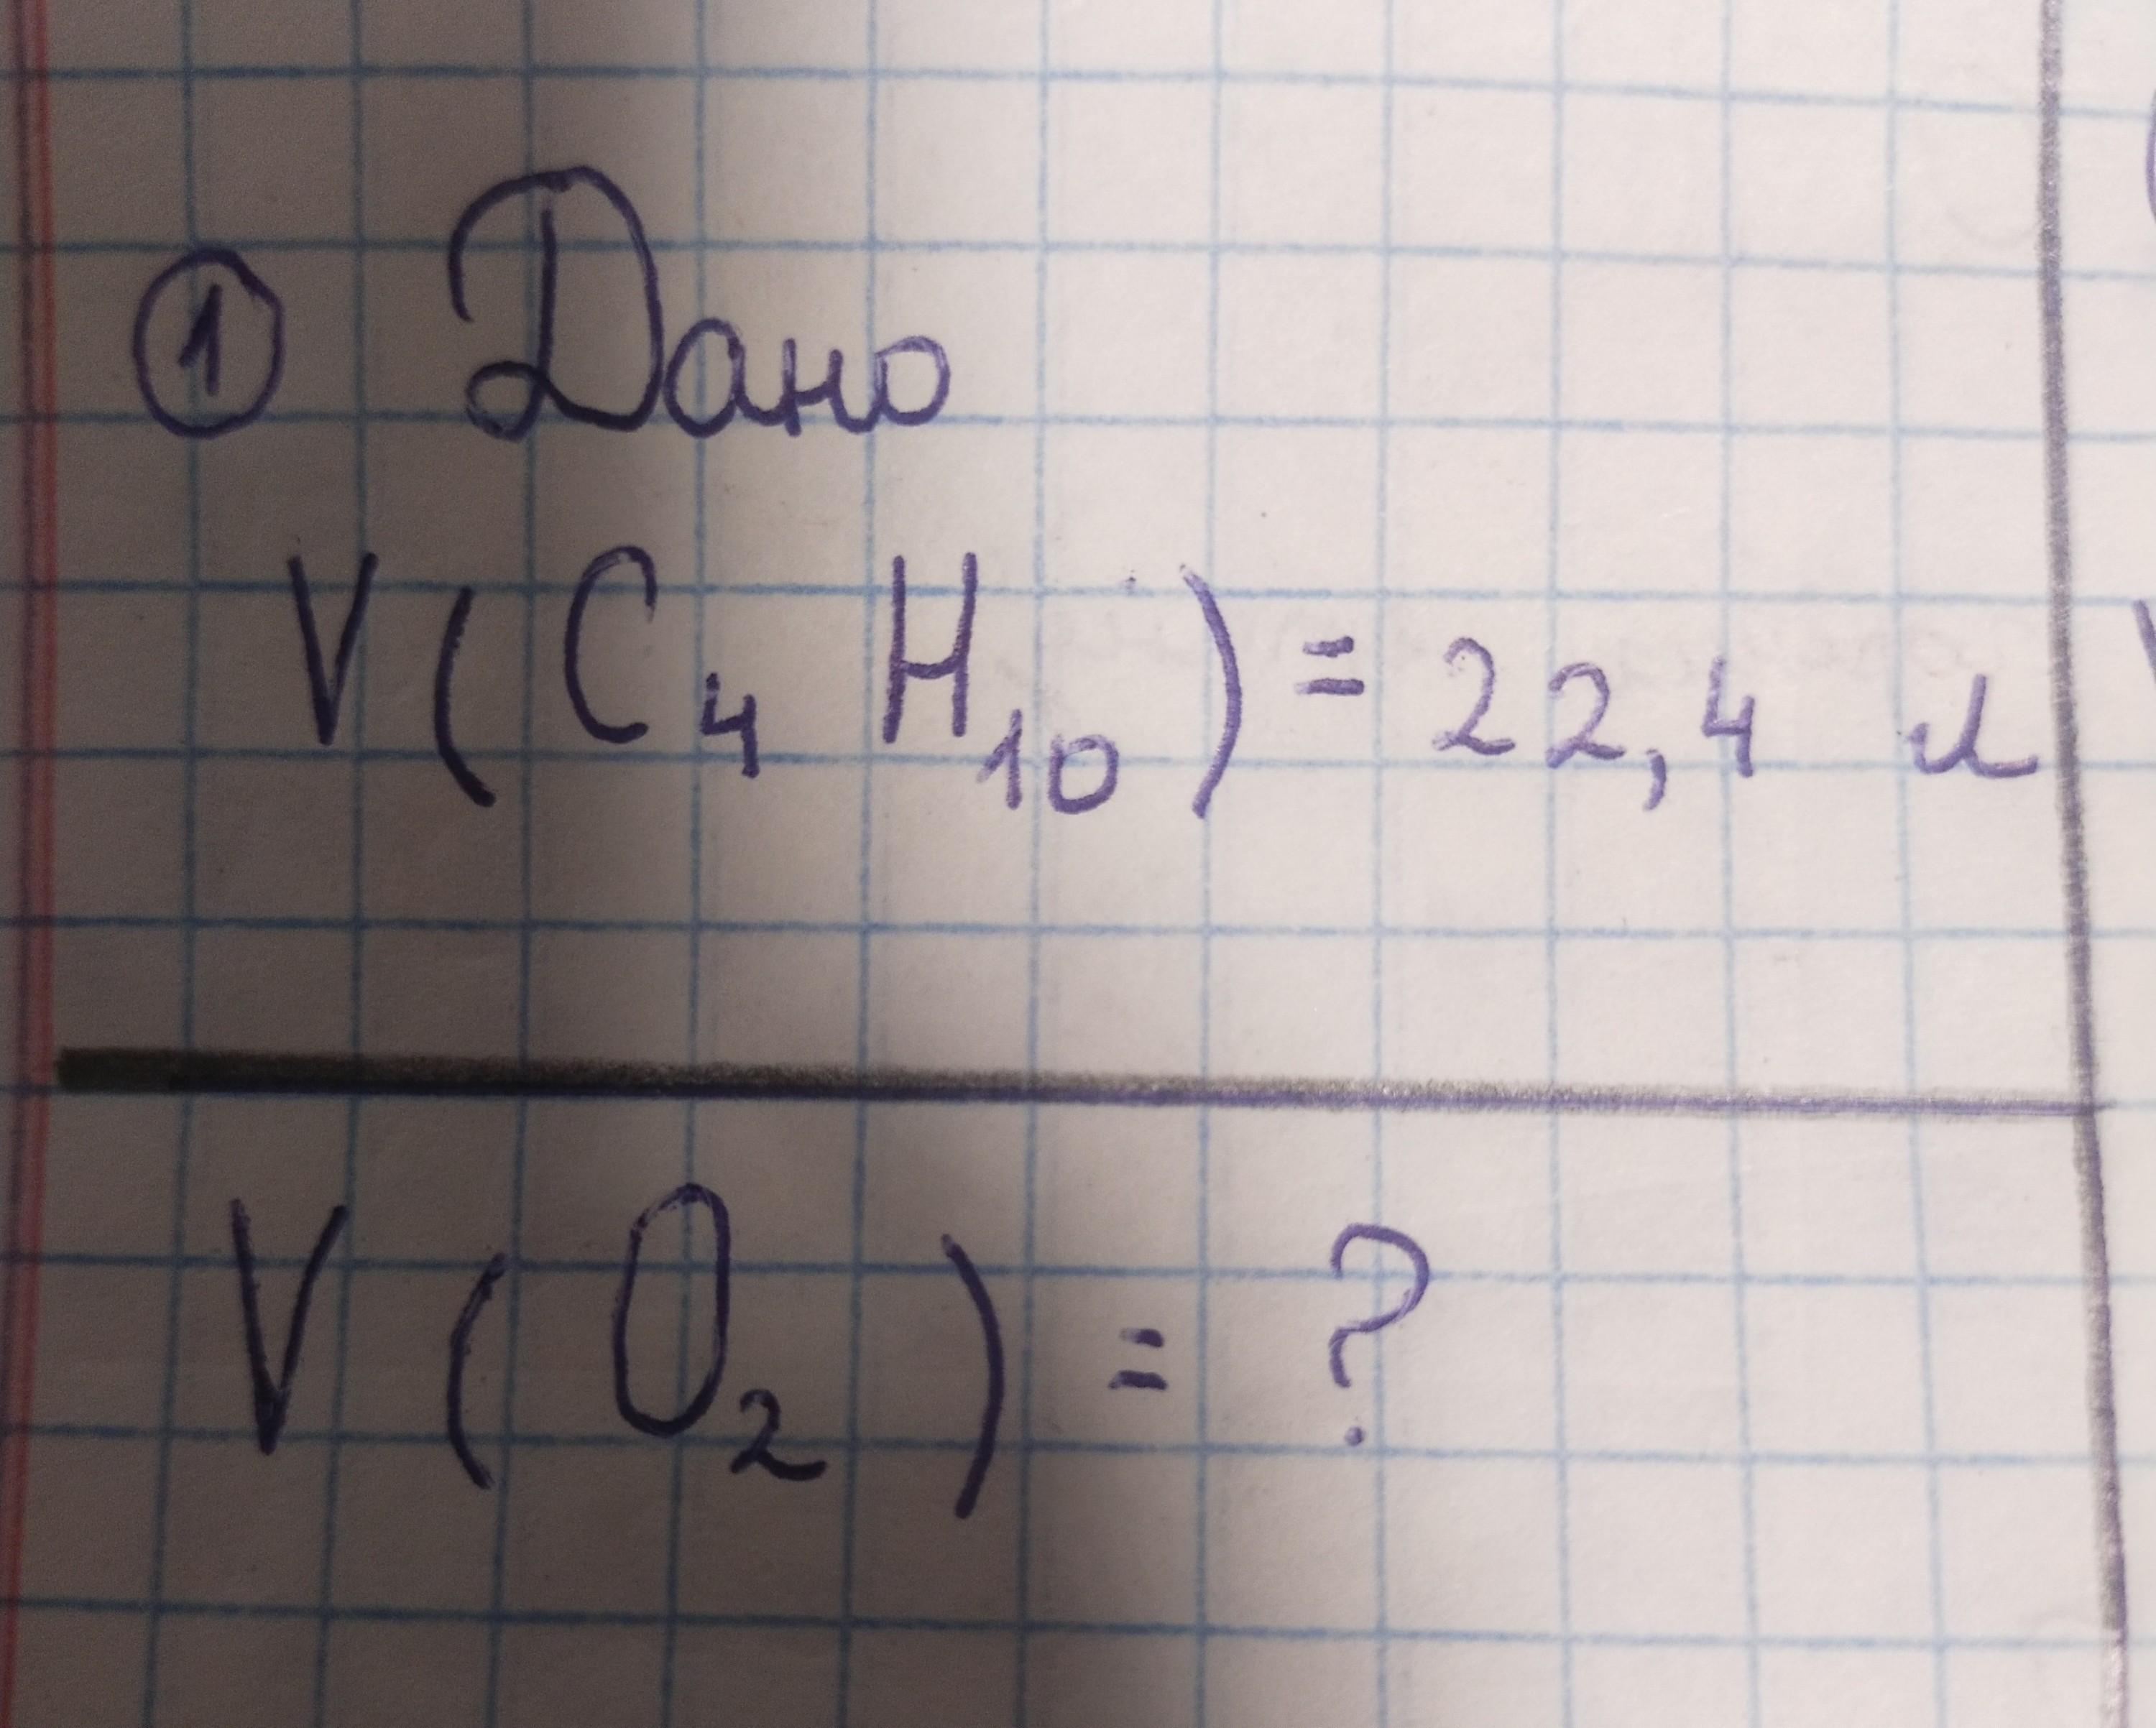 ① Дано
V(C₄H₁₀) = 22,4 л
V(O₂) = ?